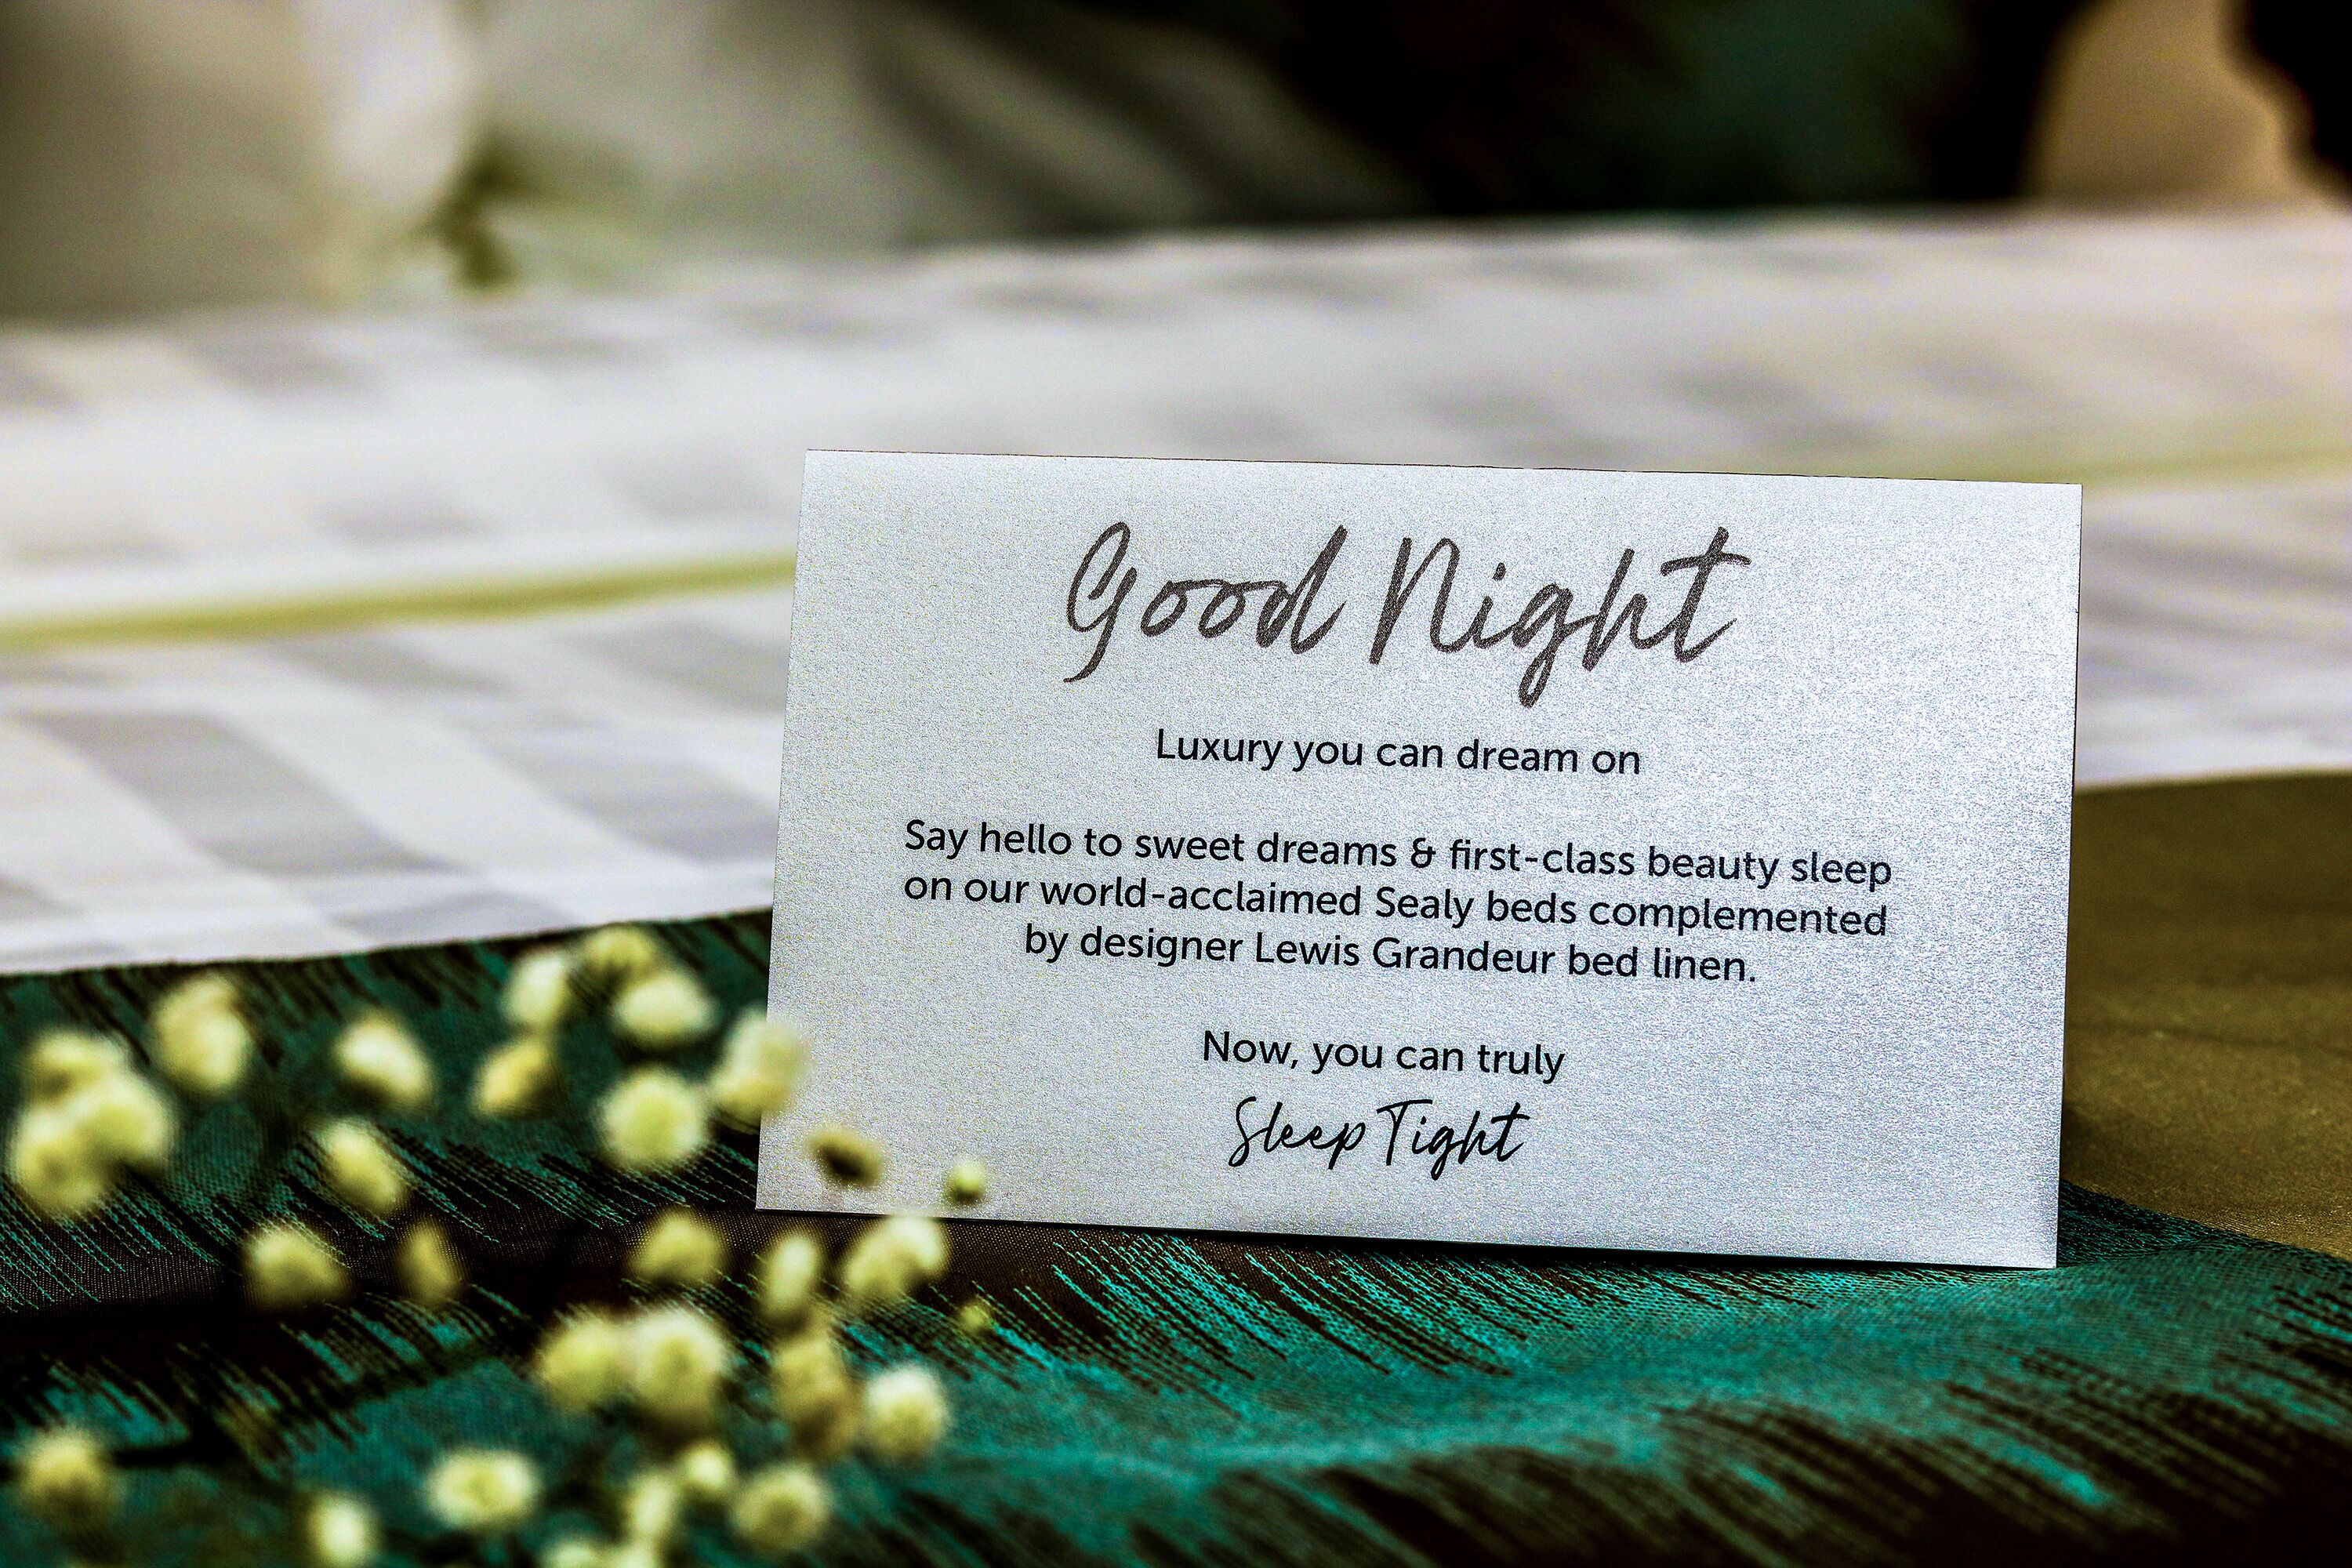 Good Night
Luxury you can dream on
Say hello to sweet dreams & first-class beauty sleep
on our world-acclaimed Sealy beds complemented
by designer Lewis Grandeur bed linen.
Now, you can truly
Sleep Tight